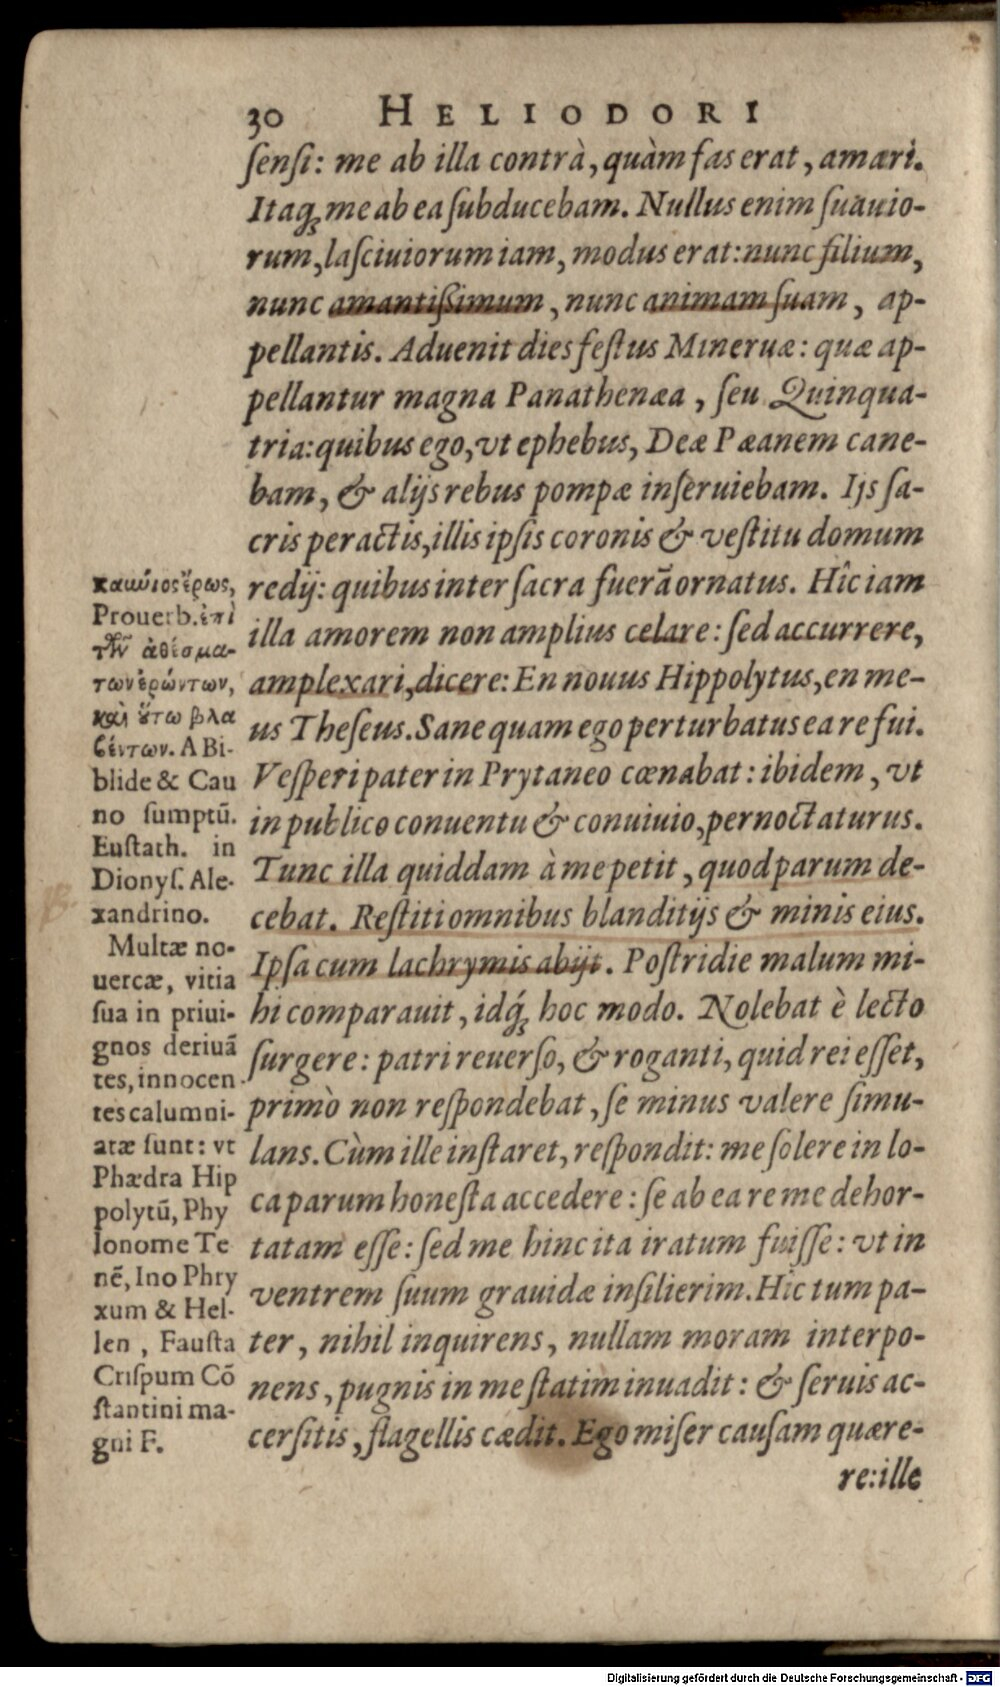 30 HELIODORI
sensi: me ab illa contrà, quàm fas erat, amari.
Itaq; me ab ea subducebam. Nullus enim suauio-
rum, lasciuiorum iam, modus erat: nunc filium,
nunc amantissimum, nunc animam suam, ap-
pellantis. Aduenit dies festus Mineruæ: quæ ap-
pellantur magna Panathenæa, seu Quinqua-
tria: quibus ego, vt ephebus, Deæ Pæanem cane-
bam, & alijs rebus pompæ inseruiebam. Ijs sa-
cris peractis, illis ipsis coronis & vestitu domum
redij: quibus inter sacra fuerā ornatus. Hîc iam
illa amorem non amplius celare: sed accurrere,
amplexari, dicere: En nouus Hippolytus, en me-
us Theseus. Sane quam ego perturbatus ea re fui.
Vesperi pater in Prytaneo cœnabat: ibidem, vt
in publico conuentu & conuiuio, pernoctaturus.
Tunc illa quiddam à me petit, quod parum de-
cebat. Restiti omnibus blanditijs & minis eius.
Ipsa cum lachrymis abijt. Postridie malum mi-
hi comparauit, idq́; hoc modo. Nolebat è lecto
surgere: patri reuerso, & roganti, quid rei esset,
primò non respondebat, se minus valere simu-
lans. Cùm ille instaret, respondit: me solere in lo-
ca parum honesta accedere: se ab ea re me dehor-
tatam esse: sed me hinc ita iratum fuisse: vt in
ventrem suum grauidæ insilierim. Hic tum pa-
ter, nihil inquirens, nullam moram interpo-
nens, pugnis in me statim inuadit: & seruis ac-
cersitis, flagellis cædit. Ego miser causam quære-
re: ille
καύνιος ἔρως,
Prouerb. ἐπὶ
τῶν ἀθέσμα-
των ἐρώντων,
καὶ οὕτω βλα
βέντων. A Bi-
blide & Cau
no sumptū.
Eustath. in
Dionys. Ale-
xandrino.
Multæ no-
uercæ, vitia
sua in priui-
gnos deriuā
tes, innocen
tes calumni-
atæ sunt: vt
Phædra Hip
polytū, Phy
lonome Te
nē, Ino Phry
xum & Hel-
len, Fausta
Crispum Cō
stantini ma-
gni F.
Digitalisierung gefördert durch die Deutsche Forschungsgemeinschaft - DFG